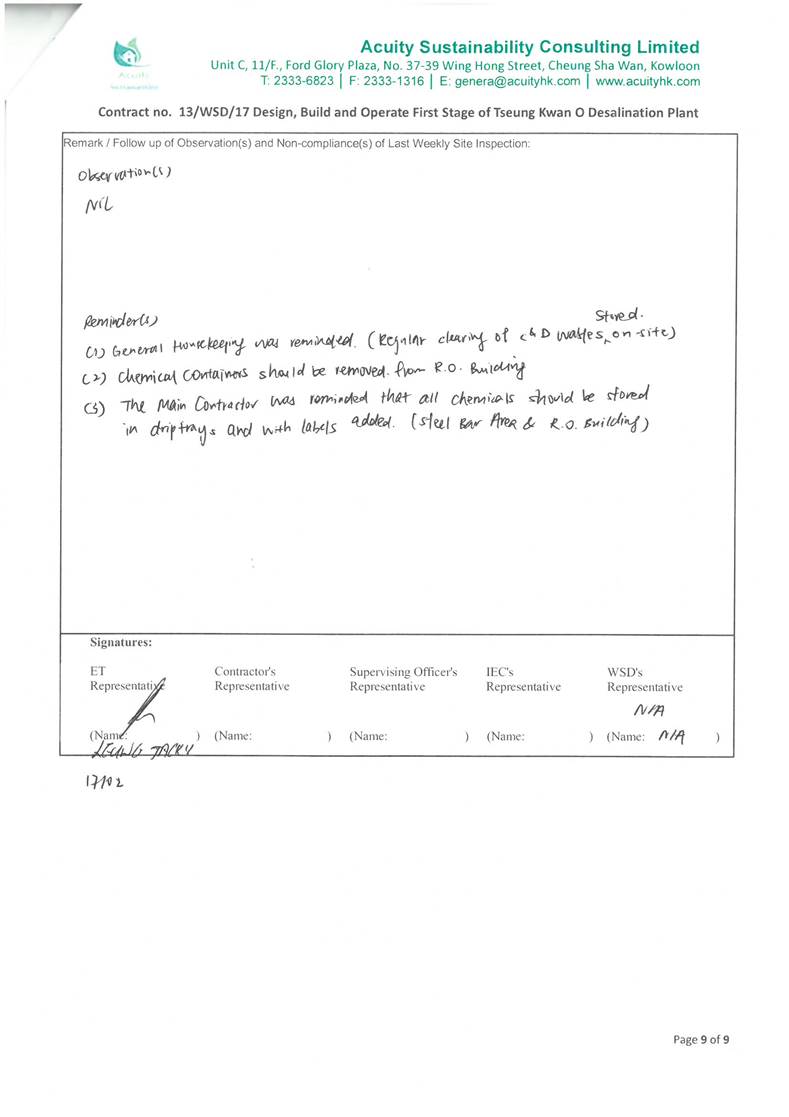 Acuity
Acuity Sustainability Consulting Limited
Unit C, 11/F., Ford Glory Plaza, No. 37-39 Wing Hong Street, Cheung Sha Wan, Kowloon
T: 2333-6823 | F: 2333-1316 | E: genera@acuityhk.com | www.acuityhk.com
Contract no. 13/WSD/17 Design, Build and Operate First Stage of Tseung Kwan O Desalination Plant
Remark / Follow up of Observation(s) and Non-compliance(s) of Last Weekly Site Inspection:
Observation(s)
NIL
Reminder(s)
Stored.
(1) General Housekeeping was reminded. (Regular clearing of C&D wastes on-site)
(2) Chemical containers should be removed from R.O. Building
(3) The Main Contractor was reminded that all chemicals should be stored
in driptrays and with labels added. (Steel Bar Area & R.O. Building)
Signatures:
ET Contractor's Supervising Officer's IEC's WSD's
Representative Representative Representative Representative Representative
N/A
(Name: ) (Name: ) (Name: ) (Name: ) (Name: N/A )
LEUNG JACKY
Page 9 of 9